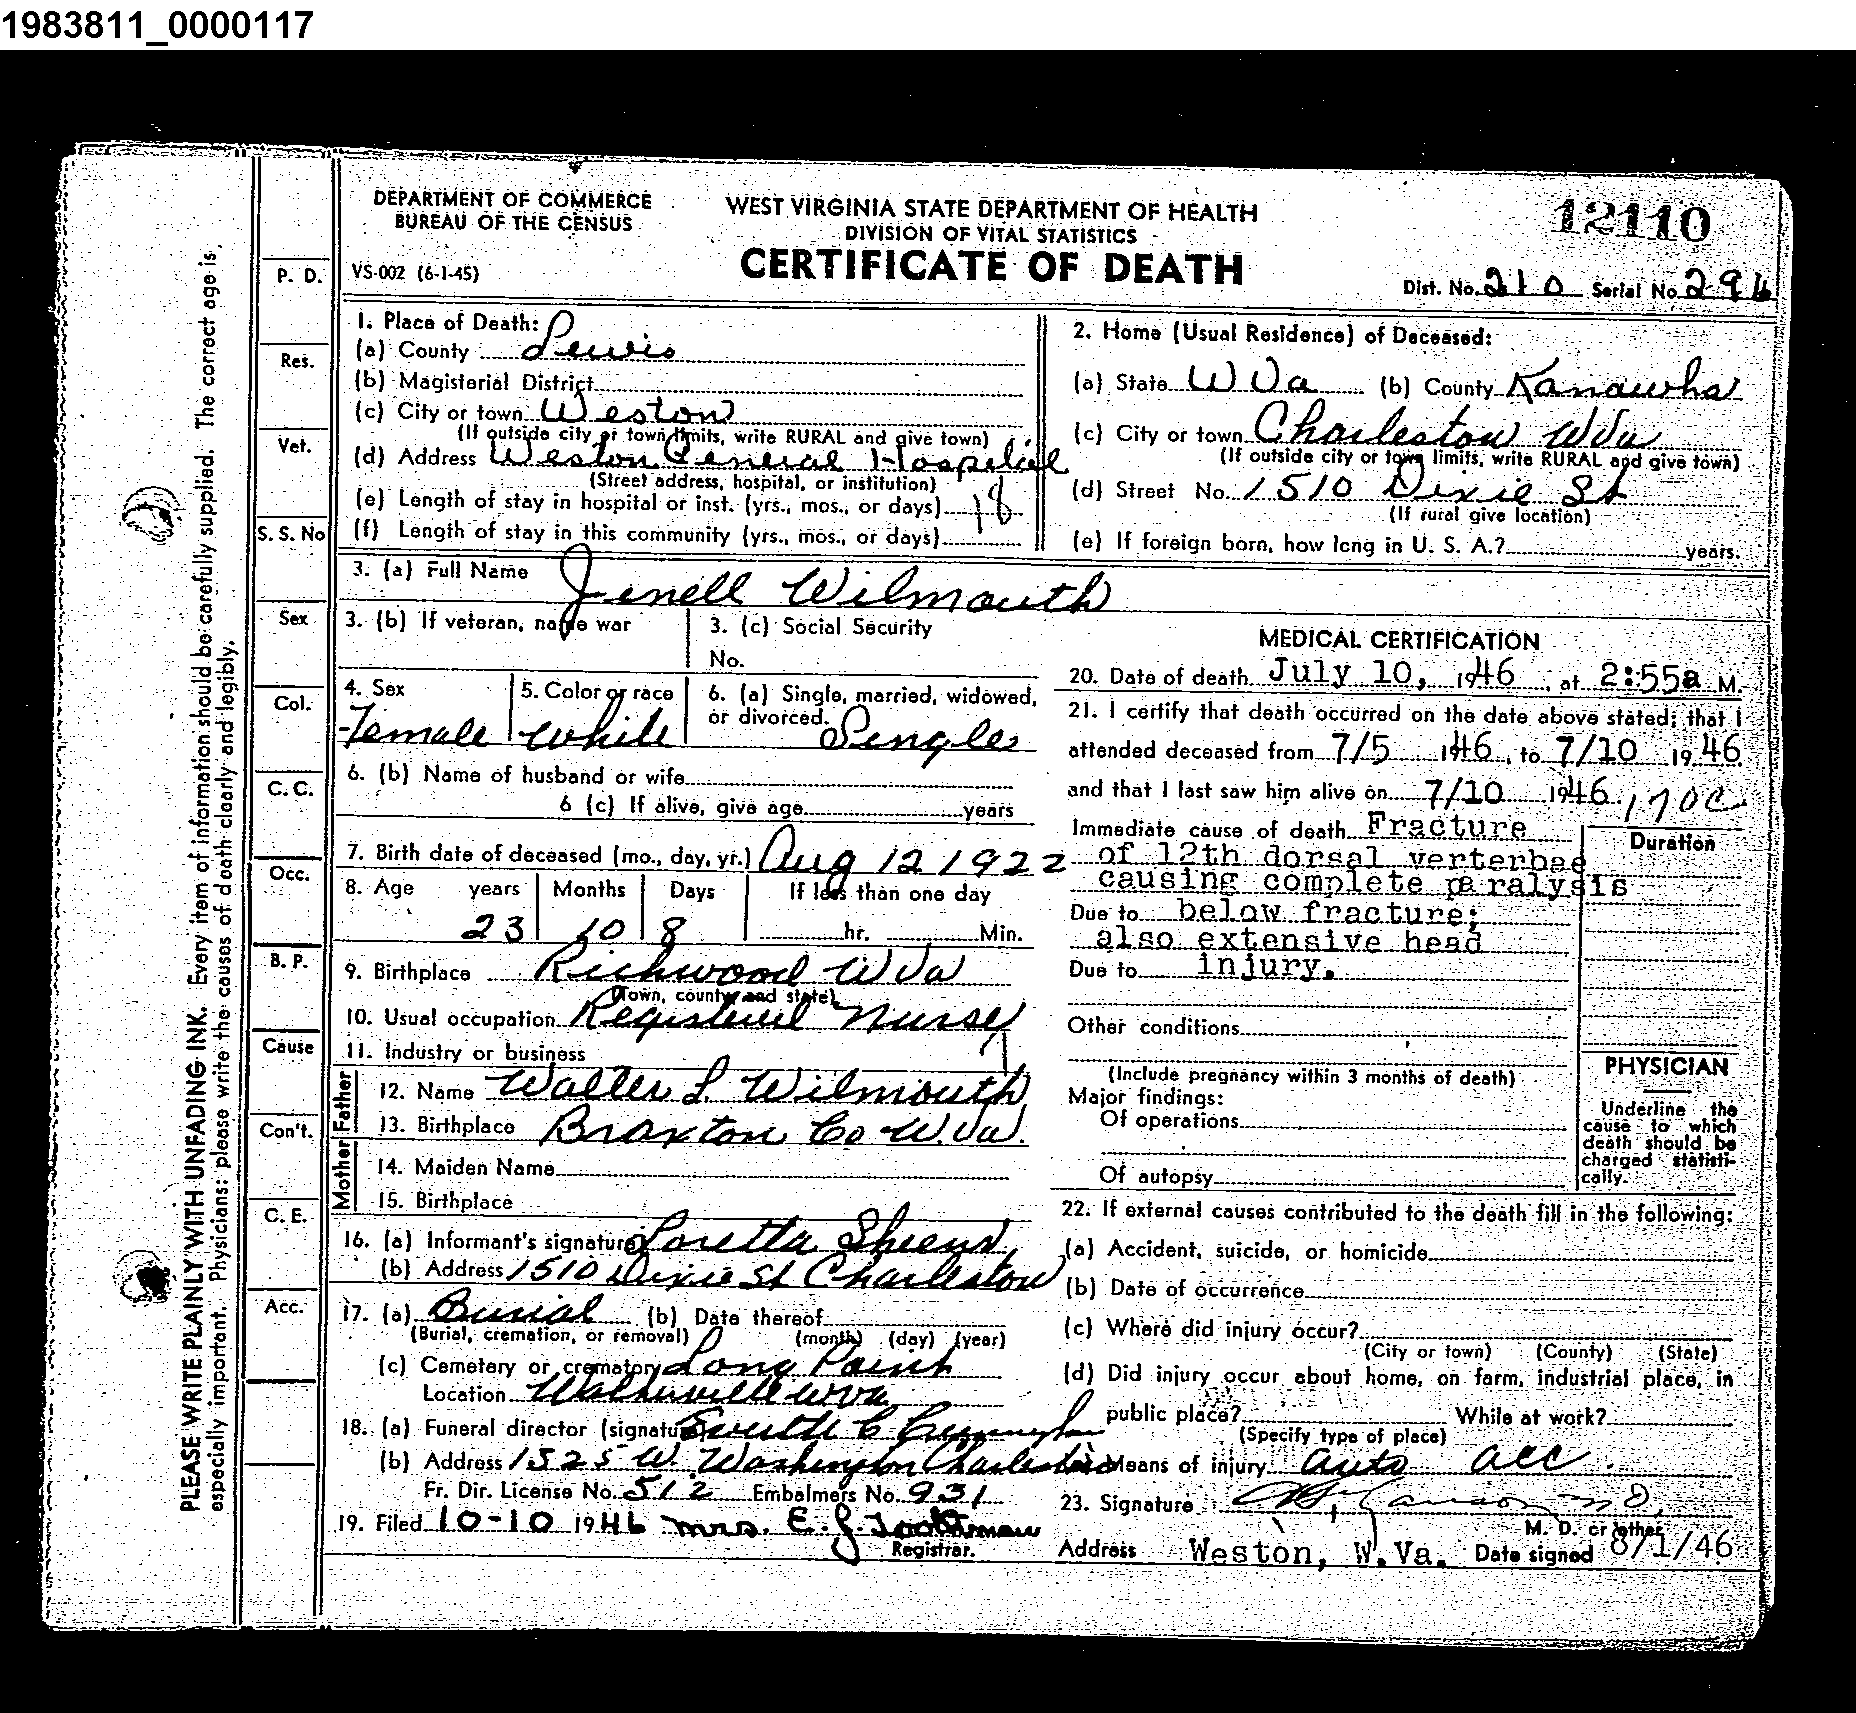 1983811_0000117
DEPARTMENT OF COMMERCE
BUREAU OF THE CENSUS
WEST VIRGINIA STATE DEPARTMENT OF HEALTH
DIVISION OF VITAL STATISTICS
CERTIFICATE OF DEATH
12110
VS-002 (6-1-45)
Dist. No. 210 Serial No. 296
PLEASE WRITE PLAINLY WITH UNFADING INK. Every item of information should be carefully supplied. The correct age is
especially important. Physicians: please write the causes of death clearly and legibly.
P. D.
Res.
Vet.
S. S. No
Sex
Col.
C. C.
Occ.
B. P.
Cause
Con't.
C. E.
Acc.
1. Place of Death:
(a) County Lewis
(b) Magisterial District
(c) City or town Weston
(If outside city or town limits, write RURAL and give town)
(d) Address Weston General Hospital
(Street address, hospital, or institution)
(e) Length of stay in hospital or inst. (yrs., mos., or days) 18
(f) Length of stay in this community (yrs., mos., or days)
2. Home (Usual Residence) of Deceased:
(a) State W Va (b) County Kanawha
(c) City or town Charleston W Va
(If outside city or town limits, write RURAL and give town)
(d) Street No. 1510 Dixie St
(If rural give location)
(e) If foreign born, how long in U. S. A.? years.
3. (a) Full Name Jenell Wilmouth
3. (b) If veteran, name war
3. (c) Social Security
No.
4. Sex
Female
5. Color or race
White
6. (a) Single, married, widowed,
or divorced. Single
6. (b) Name of husband or wife
6 (c) If alive, give age years
7. Birth date of deceased (mo., day, yr.) Aug 12 1922
8. Age years Months Days If less than one day
23 10 8 hr. Min.
9. Birthplace Richwood W Va
(Town, county and state)
10. Usual occupation Registered Nurse
11. Industry or business
Father
12. Name Walter L. Wilmouth
13. Birthplace Braxton Co W. Va.
Mother
14. Maiden Name
15. Birthplace
16. (a) Informant's signature Loretta
(b) Address 1510 Dixie St Charleston
17. (a) Burial (b) Date thereof
(Burial, cremation, or removal) (month) (day) (year)
(c) Cemetery or crematory Long Point
Location W Va
18. (a) Funeral director (signature)
(b) Address 1525 W. Washington Charleston
Fr. Dir. License No. 512 Embalmers No. 931
19. Filed 10-10 1946 Mrs. E. J.
Registrar.
MEDICAL CERTIFICATION
20. Date of death July 10, 1946, at 2:55a M.
21. I certify that death occurred on the date above stated; that I
attended deceased from 7/5 1946, to 7/10 1946
and that I last saw him alive on 7/10 1946 170c
Immediate cause of death Fracture
Duration
of 12th dorsal verterbae
causing complete paralysis
Due to below fracture;
also extensive head
Due to injury.
Other conditions
(Include pregnancy within 3 months of death)
Major findings:
Of operations
Of autopsy
PHYSICIAN
Underline the
cause to which
death should be
charged statisti-
cally.
22. If external causes contributed to the death fill in the following:
(a) Accident, suicide, or homicide
(b) Date of occurrence
(c) Where did injury occur?
(City or town) (County) (State)
(d) Did injury occur about home, on farm, industrial place, in
public place? While at work?
(Specify type of place)
Means of injury auto acc.
23. Signature M D.
M. D. or other
Address Weston, W.Va. Date signed 8/1/46